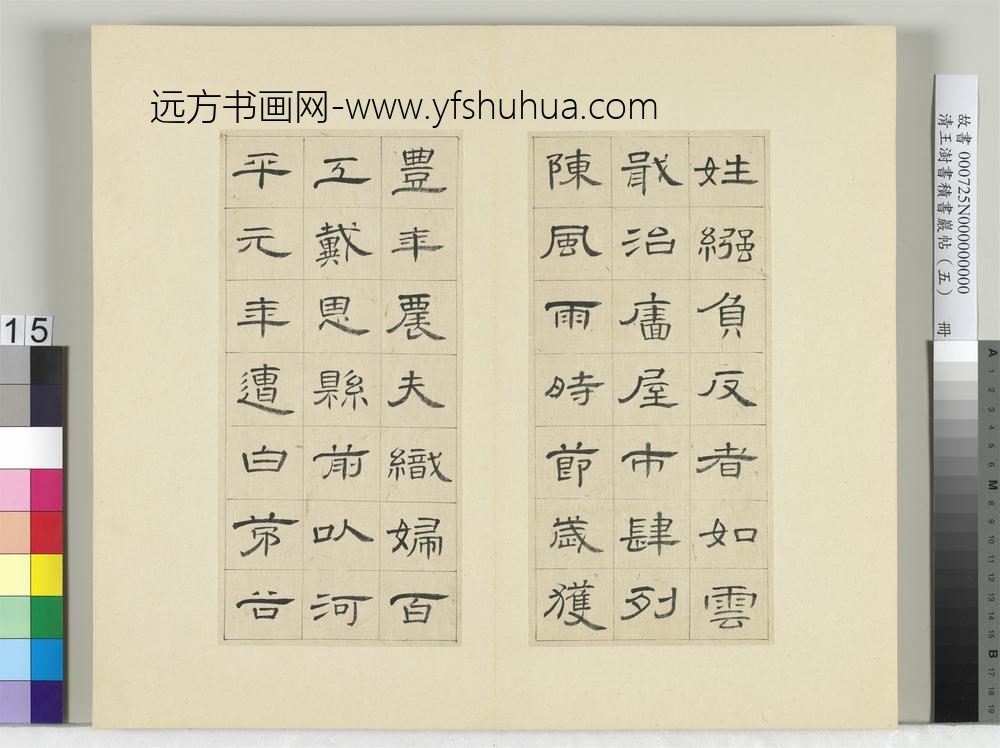 远方书画网-www.yfshuhua.com
姓繦負反者如雲
戢治廧屋市肆列
陳風雨時節歲獲
豊年農夫織婦百
工戴恩縣前以河
平元年遭白茅谷
故書000725N000000000
清王澍書積書巖帖(五) 冊
15
A 1 2 3 4 5 M 8 9 10 11 12 13 14 15 B 17 18 19